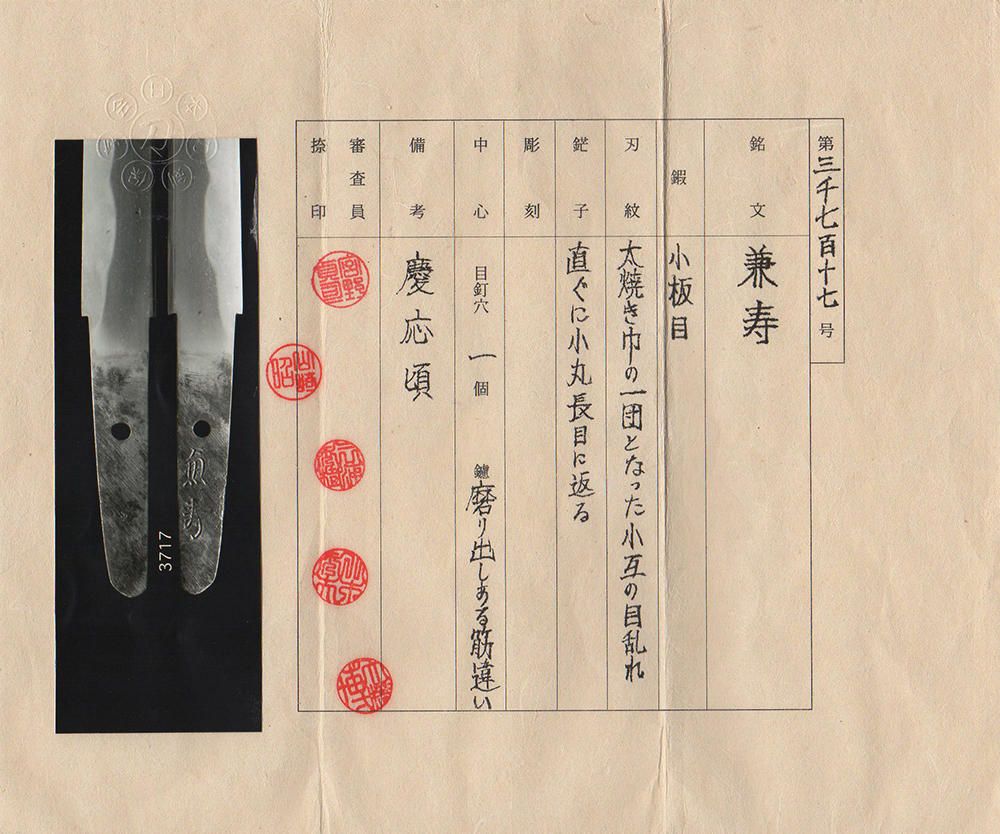 第三千七百十七号
銘文
兼寿
鍜
小板目
刃紋
太焼き巾の一団となった小互の目乱れ
鋩子
直ぐに小丸長目に返る
彫刻
中心
目釘穴 一個
鑢 磨り出しある筋違い
備考
慶応頃
審査員
捺印
兼寿
3717